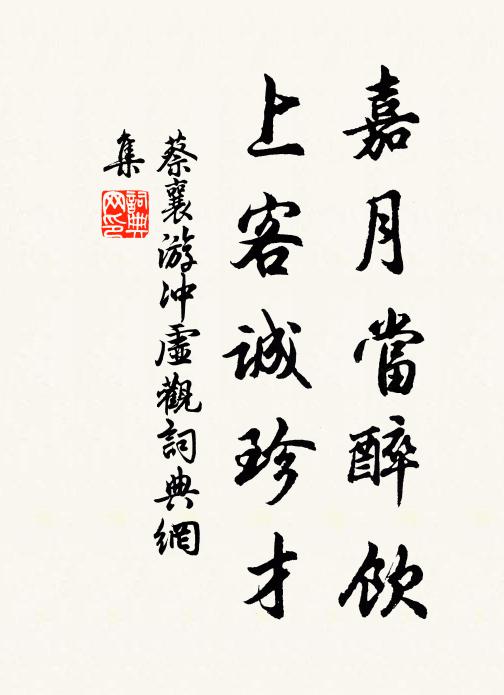 嘉月當醉飲
上客誠珍才
蔡襄游冲虛觀詞典網
集
詞典
网印